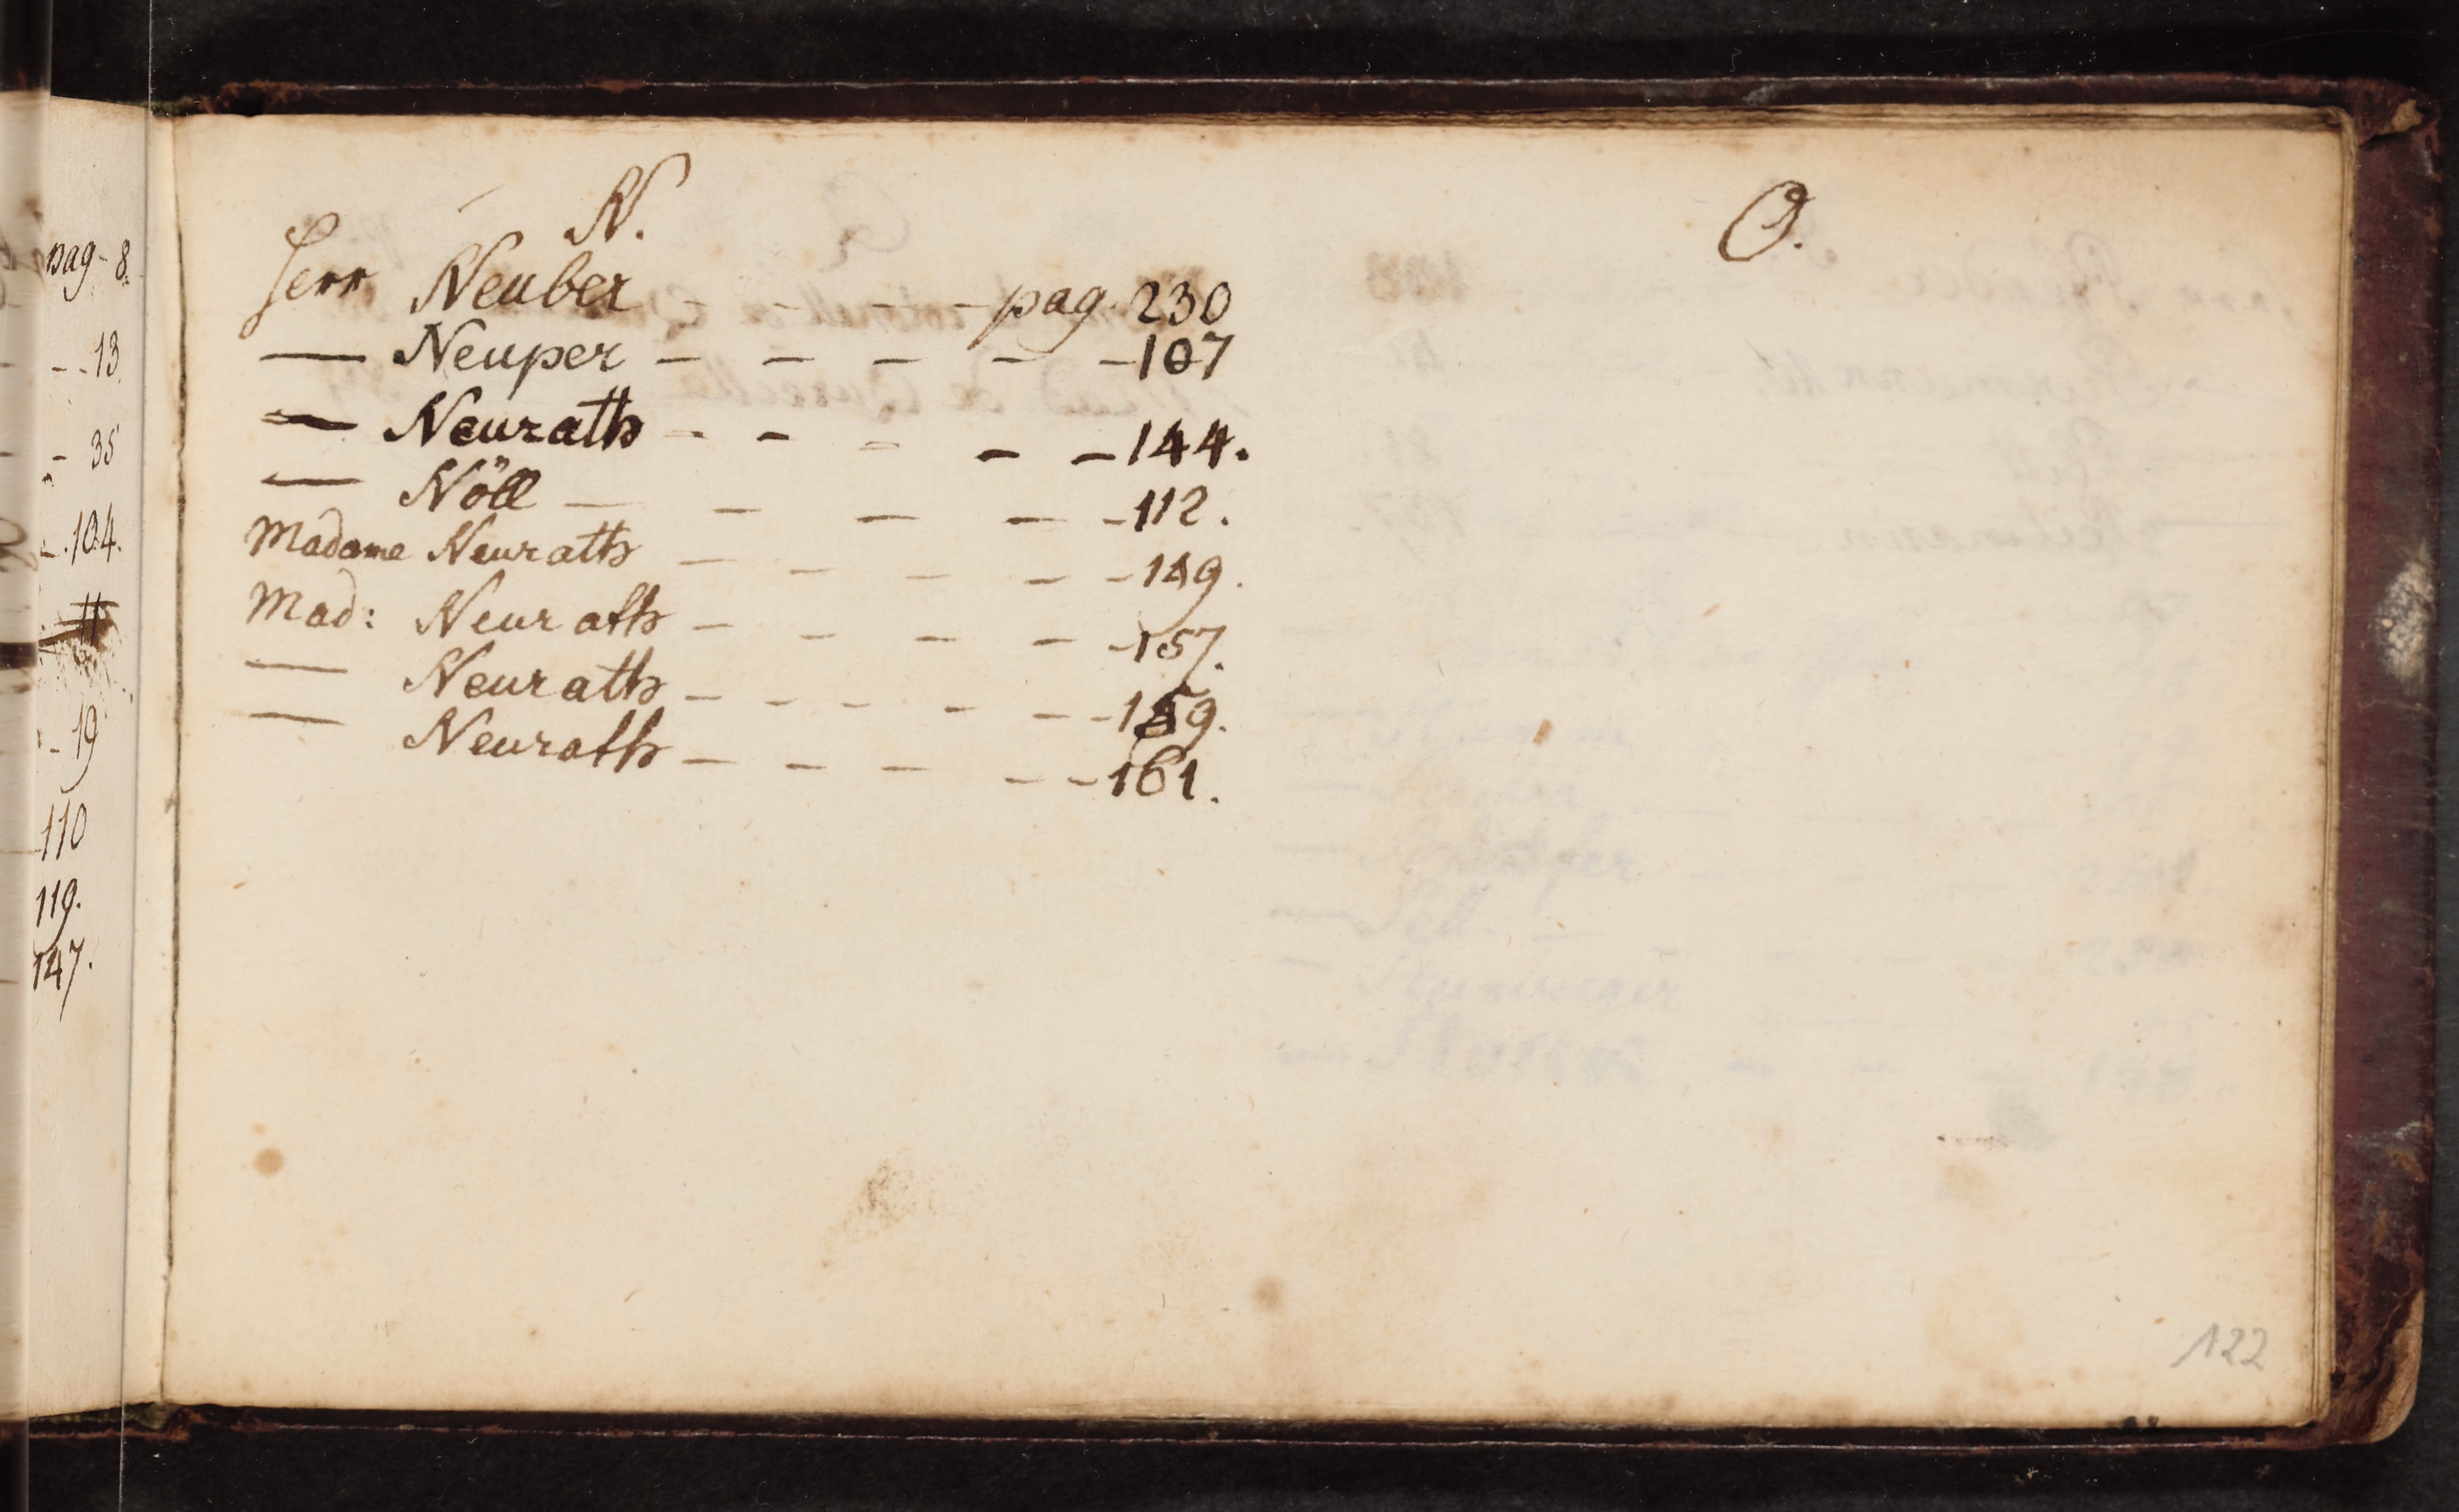 pag- 8.
- - 13
- 35
- . 104.
- 19
110
119.
147.
N.
Herr Neuber - - - - pag. 230
— Neuper - - - - - 107
— Neurath - - - - - 144.
— Nöll - - - - - 112.
Madame Neurath - - - - - 149.
Mad: Neurath - - - - - 157.
— Neurath - - - - - - 159.
— Neurath - - - - - 161.
O.
122